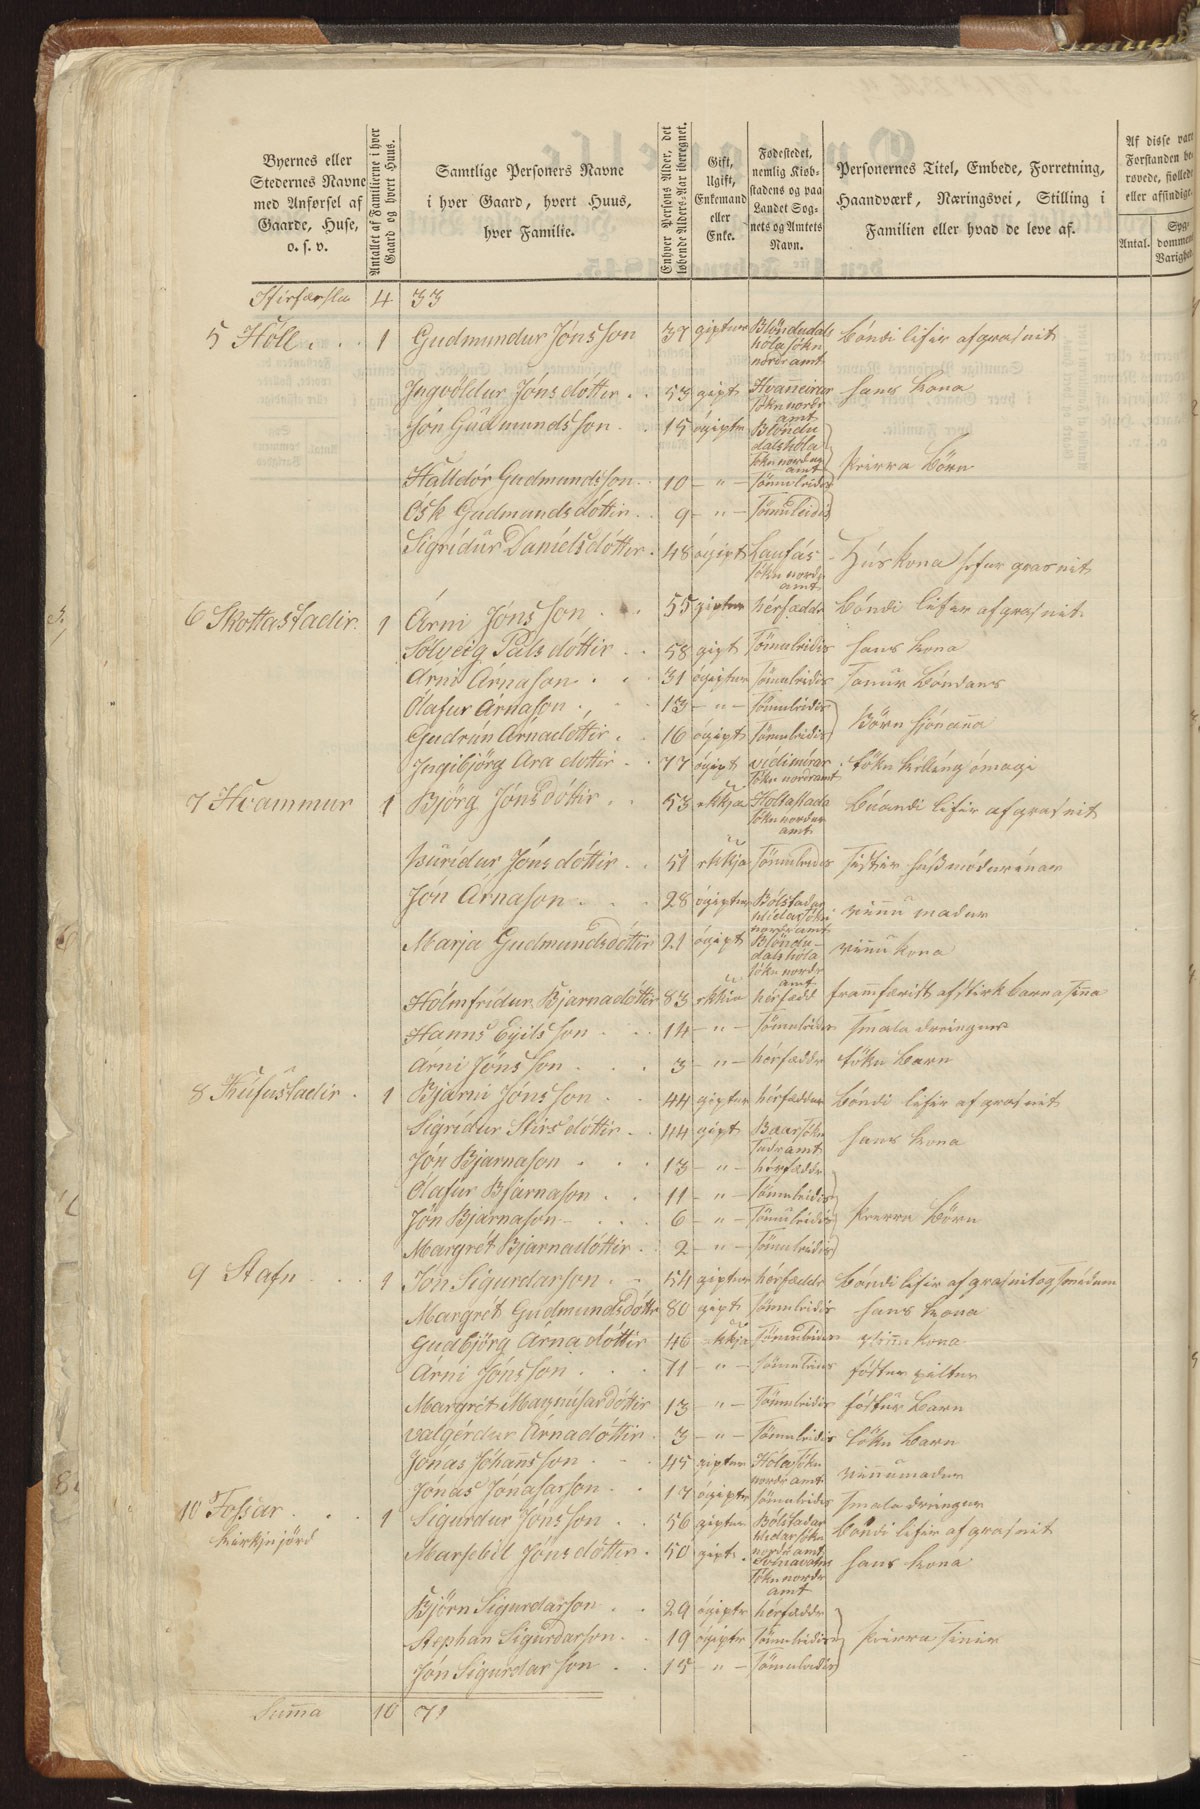 Byernes eller Stedernes Navne med Anførsel af Gaarde, Huse, o. s. v.
Antallet af Familierne i hver Gaard og hvert Huus.
Samtlige Personers Navne i hver Gaard, hvert Huus, hver Familie.
Enhver Persons Alder, det løbende Alders-Aar iberegnet.
Gift, Ugift, Enkemand eller Enke.
Fødestedet, nemlig Kiøbstadens og paa Landet Sognets og Amtets Navn.
Personernes Titel, Embede, Forretning, Haandværk, Næringsvei, Stilling i Familien eller hvad de leve af.
Af disse vare
Forstanden
røvede,
eller
Antal.
4 33
5 Hóll . . 1 Gudmundur Jónsson 37 giptur Blöndudals hóla sókn nordramt bóndi lifir af grasnit
Ingvöldur Jónsdóttir . . 53 gipt sókn nordr amt hans kona
Jón Gudmundsson . . 15 ógiptr Blöndudalshóla sókn nordur amt
Halldór Gudmundsson . 10 – " – Sömuleidis þeirra börn
Ósk Gudmundsdóttir . . 9 – " – Sömuleidis
Sigrídur Daníelsdóttir . 48 ógipt Laufás sókn nordr amt Húskona hefur grasnit
6 Skottastadir . 1 Árni Jónsson . . 55 giptur hérfæddr bóndi lifir af grasnit
Sólveig Pálsdóttir . . 58 gipt Sömuleidis hans kona
Árni Árnason . . . 31 ógiptur Sömuleidis Sonur bóndans
Ólafur Árnason . . . 13 – " – Sömuleidis
Gudrún Árnadóttir . 16 ógipt Sömuleidis Börn hjónanna
Ingibjörg Aradóttir . . 77 ógipt vídimírar sókn nordramt töku kelling ómagi
7 Hvammur 1 Björg Jónsdóttir . . 53 ekkja Holtastada sókn nordur amt búandi lifir af grasnit
Þurídur Jónsdóttir . . 51 ekkja Sömuleidis Sistir húsmódurinnar
Jón Árnason . . . 28 ógiptur Bólstadar hlídar sókn nordr amt vinnu madur
Marja Gudmundsdóttir 21 ógipt Blöndudalshóla sókn nordr amt vinnukona
Hólmfrídur Bjarnadóttir 83 ekkia hérfædd framfærist af stirk barna sinna
Hanns Egilsson . . 14 – " – Sömuleidis Smala dreingur
Árni Jónsson . . . 3 – " – hérfæddr töku barn
8 Kúfustadir . 1 Bjarni Jónsson . . 44 giptur hérfæddur bóndi lifir af grasnit
Sigrídur . 44 gipt hans kona
Jón Bjarnason . . . 13 – " – hérfæddr
Ólafur Bjarnason . . 11 – " – Sömuleidis
Jón Bjarnason . . . 6 – " – Sömuleidis þeirra börn
Margrét Bjarnadóttir . 2 – " – Sömuleidis
9 Stafn . . . 1 Jón Sigurdarson . . 54 giptur hérfæddr bóndi lifir af grasnit og smídum
Margrét Gudmundsdóttr 80 gipt Sömuleidis hans kona
Gudbjörg Árnadóttir 46 ekkja Sömuleidis vinnukona
Árni Jónsson . . . 11 – " – Sömuleidis fóstur piltur
Margrét Magnúsardóttir 13 – " – Sömuleidis fóstur barn
valgérdur Árnadóttir . 3 – " – Sömuleidis töku barn
Jónas Jóhannsson . . 45 giptur Hóla sókn nordr amt vinnumadur
Jónas Jónasarson . . 17 ógiptr Sömuleidis Smala dreingur
10 Fossar . . . 1 Sigurdur Jónsson . . 56 giptur Bólstadar hlídar sókn nordr amt bóndi lifir af grasnit
kirkjujörd
Marsebil Jónsdóttir . 50 gipt . Svínavatns sókn nordr amt hans kona
Björn Sigurdarson . . 29 ógiptr hérfæddr
Stephan Sigurdarson . 19 ógiptr Sömuleidis þeirra sinir
Jón Sigurdarson . . 15 – " – Sömuleidis
Summa 10 71